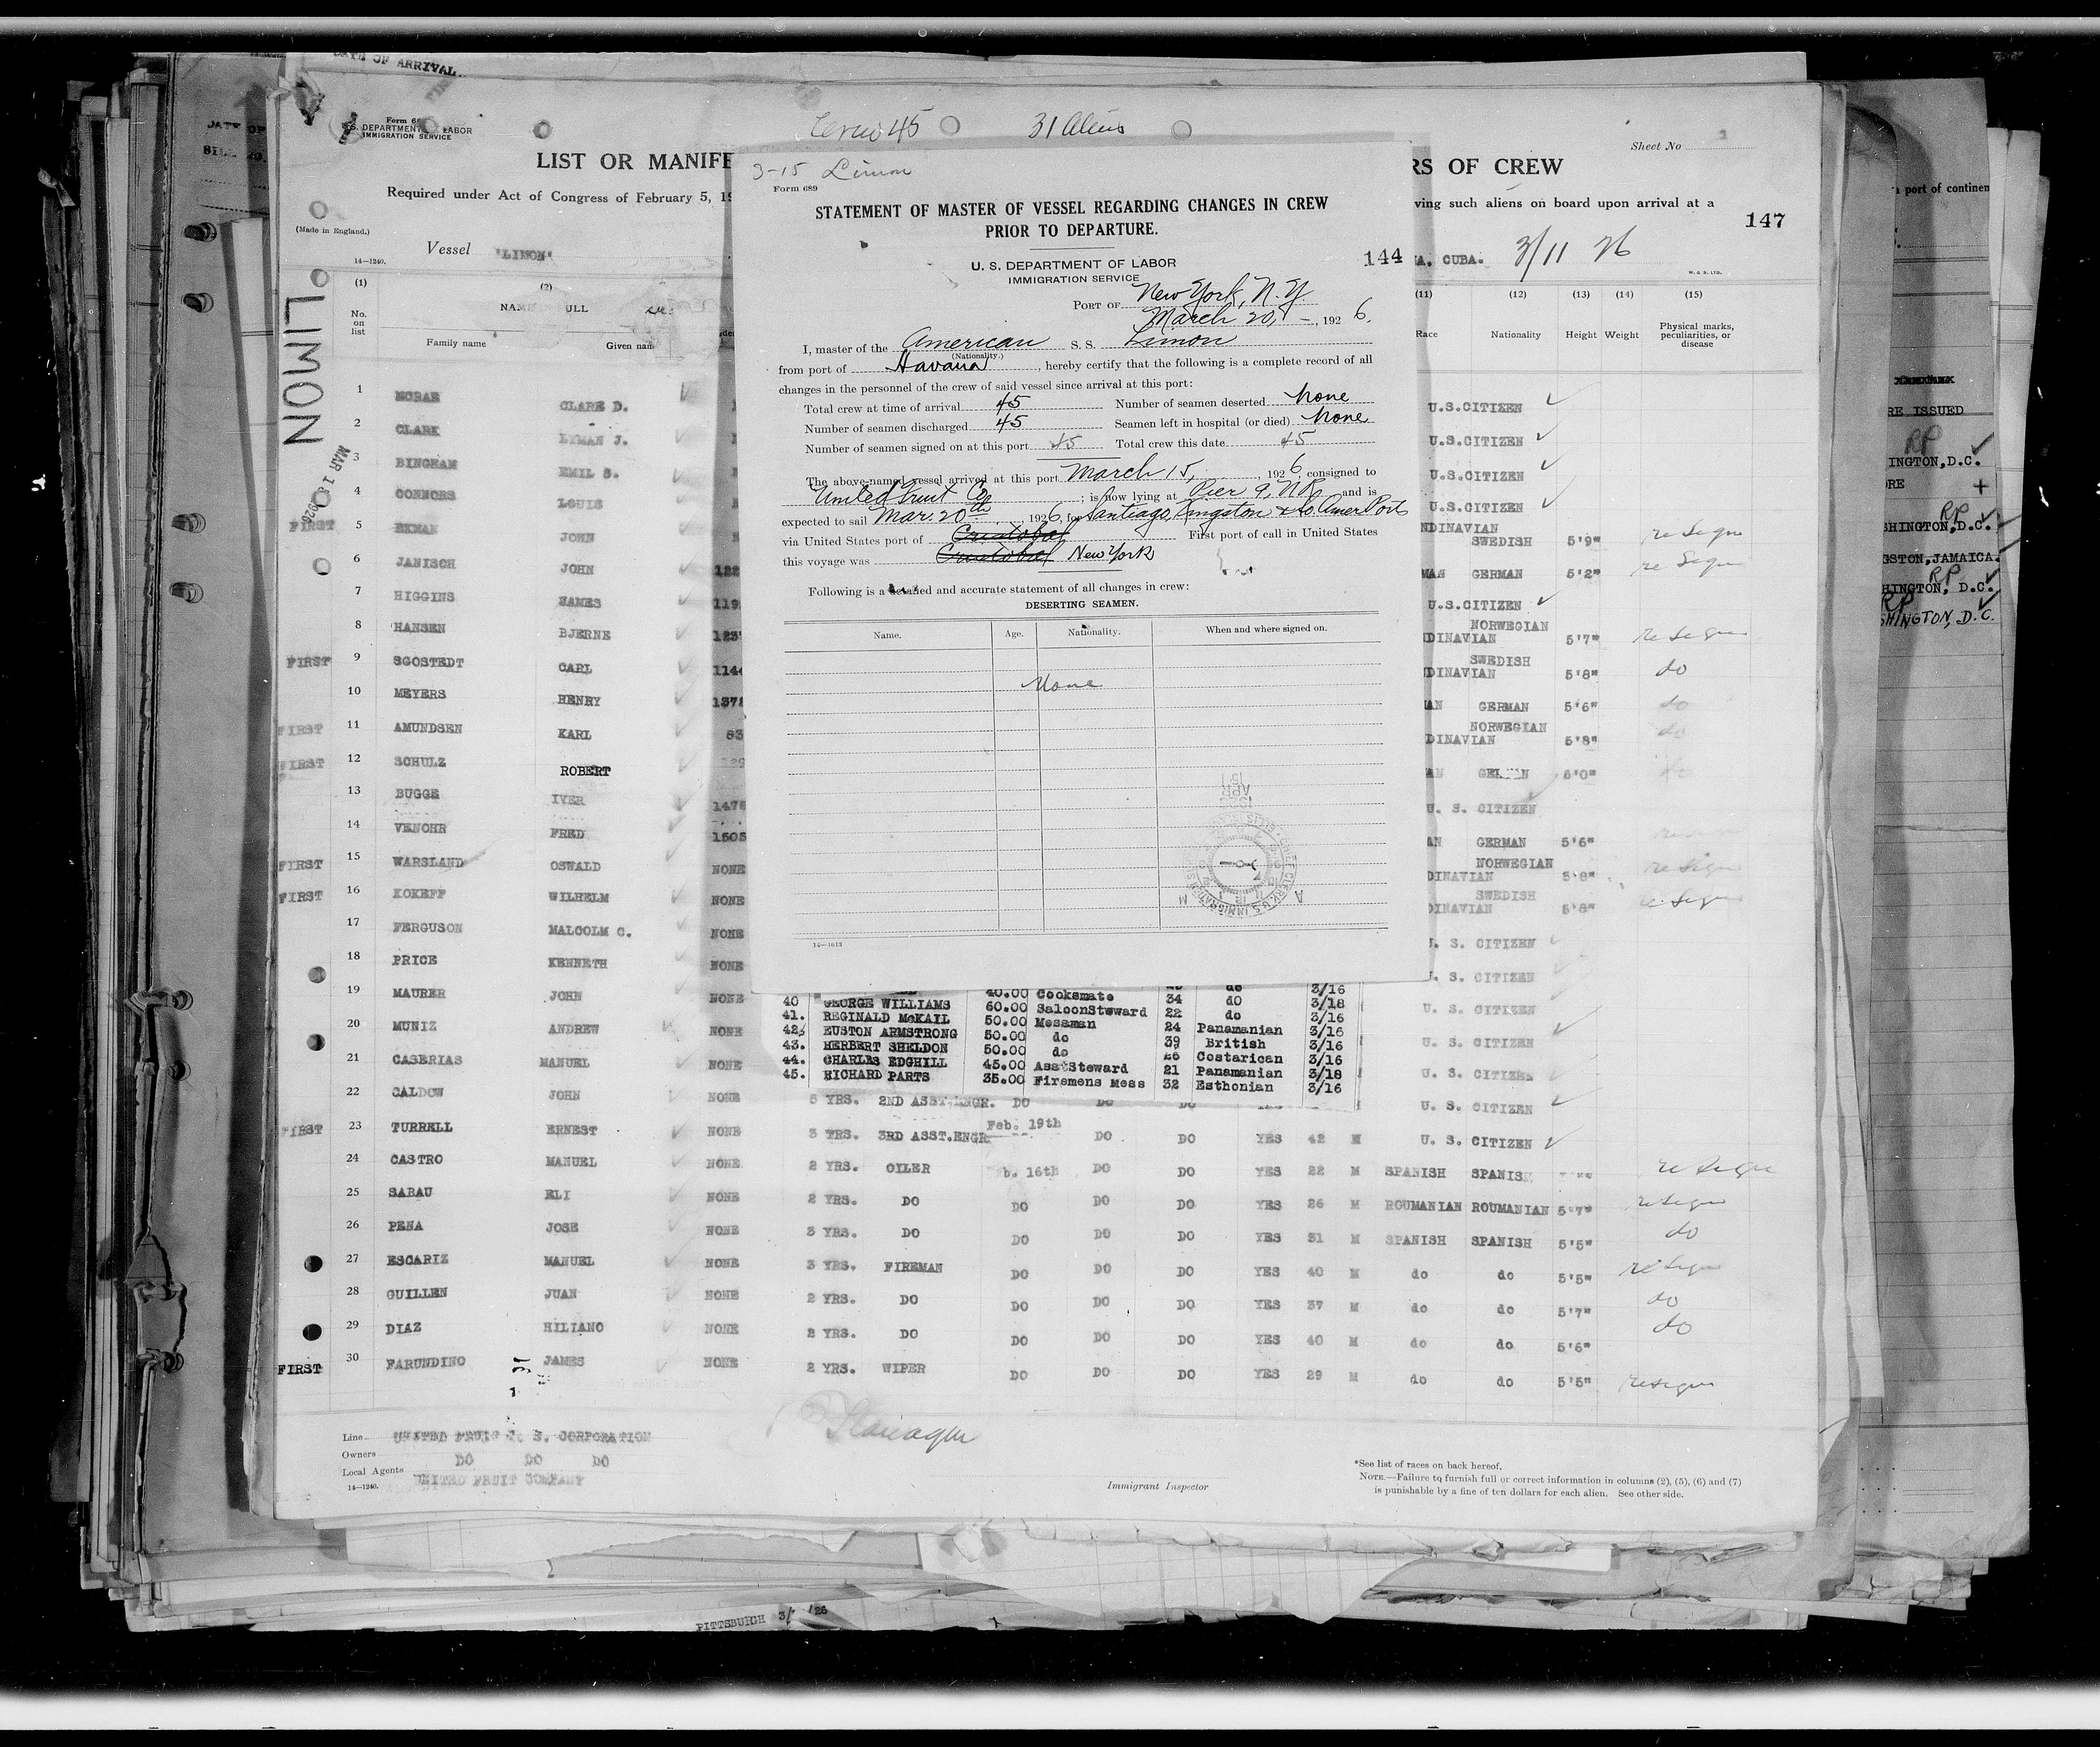 DATE OF ARRIVAL
Crew 45 31 Aliens
Form 68
U.S. DEPARTMENT OF LABOR
IMMIGRATION SERVICE
Sheet No 1
LIST OR MANIFE
RS OF CREW
Required under Act of Congress of February 5, 19
ving such aliens on board upon arrival at a
147
(Made in England.)
Vessel "LIMON"
A. CUBA. 3/11 26
14—1240.
W. & S. LTD.
LIMON
(1) (2) (11) (12) (13) (14) (15)
No. on list
Family name Given nam
Race Nationality Height Weight Physical marks, peculiarities, or disease
3-15 Limon
Form 689
STATEMENT OF MASTER OF VESSEL REGARDING CHANGES IN CREW
PRIOR TO DEPARTURE.
U. S. DEPARTMENT OF LABOR
IMMIGRATION SERVICE
144
PORT OF New York, N.Y.
March 20, 1926.
I, master of the American S. S. Limon
(Nationality.)
from port of Havana, hereby certify that the following is a complete record of all
changes in the personnel of the crew of said vessel since arrival at this port:
Total crew at time of arrival 45 Number of seamen deserted None
Number of seamen discharged 45 Seamen left in hospital (or died) None
Number of seamen signed on at this port 45 Total crew this date 45
The above-named vessel arrived at this port March 15, 1926 consigned to
United Fruit Co; is now lying at Pier 9, N.R. and is
expected to sail Mar. 20th, 1926, for Santiago, Kingston & So. Amer Ports
via United States port of Cristobal First port of call in United States
this voyage was Cristobal New York
Following is a detailed and accurate statement of all changes in crew:
DESERTING SEAMEN.
Name. Age. Nationality. When and where signed on.
None
14—1613
1 MCRAE CLARE D. U.S.CITIZEN
2 CLARK LYMAN J. U.S.CITIZEN
3 BINGHAM EMIL S. U.S.CITIZEN
4 CONNORS LOUIS U.S.CITIZEN
FIRST 5 EKMAN JOHN NDINAVIAN SWEDISH 5'9" re Sign
6 JANISCH JOHN 122 MAN GERMAN 5'2" re Sign
7 HIGGINS JAMES 119 U.S.CITIZEN
8 HANSEN BJERNE 123 DINAVIAN NORWEGIAN 5'7" re Sign
FIRST 9 SGOSTEDT CARL 114 DINAVIAN SWEDISH 5'8" do
10 MEYERS HENRY 137 AN GERMAN 5'6" do
FIRST 11 AMUNDSEN KARL 83 DINAVIAN NORWEGIAN 5'8" do
FIRST 12 SCHULZ ROBERT 129 AN GERMAN 6'0" do
13 BUGGE IVER 147 U. S. CITIZEN
14 VENOHR FRED 1505 AN GERMAN 5'6"
FIRST 15 WARSLAND OSWALD NONE DINAVIAN NORWEGIAN 5'8" re Sign
FIRST 16 KOKEFF WILHELM NONE DINAVIAN SWEDISH 5'8" re Sign
17 FERGUSON MALCOLM C. NONE U. S. CITIZEN
18 PRICE KENNETH NONE U. S. CITIZEN
19 MAURER JOHN NONE U. S. CITIZEN
20 MUNIZ ANDREW NONE U. S. CITIZEN
21 CASERIAS MANUEL NONE U. S. CITIZEN
40 GEORGE WILLIAMS 60.00 Cooksmate 34 do 3/18
41. REGINALD McKAIL 50.00 SaloonSteward 22 do 3/16
42. EUSTON ARMSTRONG 50.00 Messman 24 Panamanian 3/16
43. HERBERT SHELDON 50.00 do 39 British 3/16
44. CHARLES EDGHILL 45.00 do 26 Costarican 3/16
45. RICHARD PARTS 35.00 AsstSteward 21 Panamanian 3/18
Firemens Mess 32 Esthonian 3/16
22 CALDOW JOHN NONE 5 YRS. 2ND ASST.ENGR. DO DO DO U. S. CITIZEN
FIRST 23 TURRELL ERNEST NONE 3 YRS. 3RD ASST.ENGR. Feb. 19th DO DO YES 42 M U. S. CITIZEN
24 CASTRO MANUEL NONE 2 YRS. OILER b. 16th DO DO YES 22 M SPANISH SPANISH re Sign
25 SABAU ELI NONE 2 YRS. DO DO DO DO YES 26 M ROUMANIAN ROUMANIAN 5'7" re Sign
26 PENA JOSE NONE 3 YRS. DO DO DO DO YES 31 M SPANISH SPANISH 5'5" do
27 ESCARIZ MANUEL NONE 3 YRS. FIREMAN DO DO DO YES 40 M do do 5'5" re Sign
28 GUILLEN JUAN NONE 2 YRS. DO DO DO DO YES 37 M do do 5'7" do
29 DIAZ HILIANO NONE 2 YRS. DO DO DO DO YES 40 M do do 5'6" do
FIRST 30 FARUNDINO JAMES NONE 2 YRS. WIPER DO DO DO YES 29 M do do 5'5" resign
Line UNITED FRUIT S. S. CORPORATION
Owners DO DO DO
Local Agents UNITED FRUIT COMPANY
14—1240.
Immigrant Inspector
*See list of races on back hereof.
NOTE.—Failure to furnish full or correct information in columns (2), (5), (6) and (7)
is punishable by a fine of ten dollars for each alien. See other side.
a port of continen
RE ISSUED
RP
INGTON,D.C.
ORE +
RP
SHINGTON,D.C.
GSTON,JAMAICA.
RP
HINGTON, D.C.
RP
SHINGTON, D.C.
PITTSBURGH 3/ /26